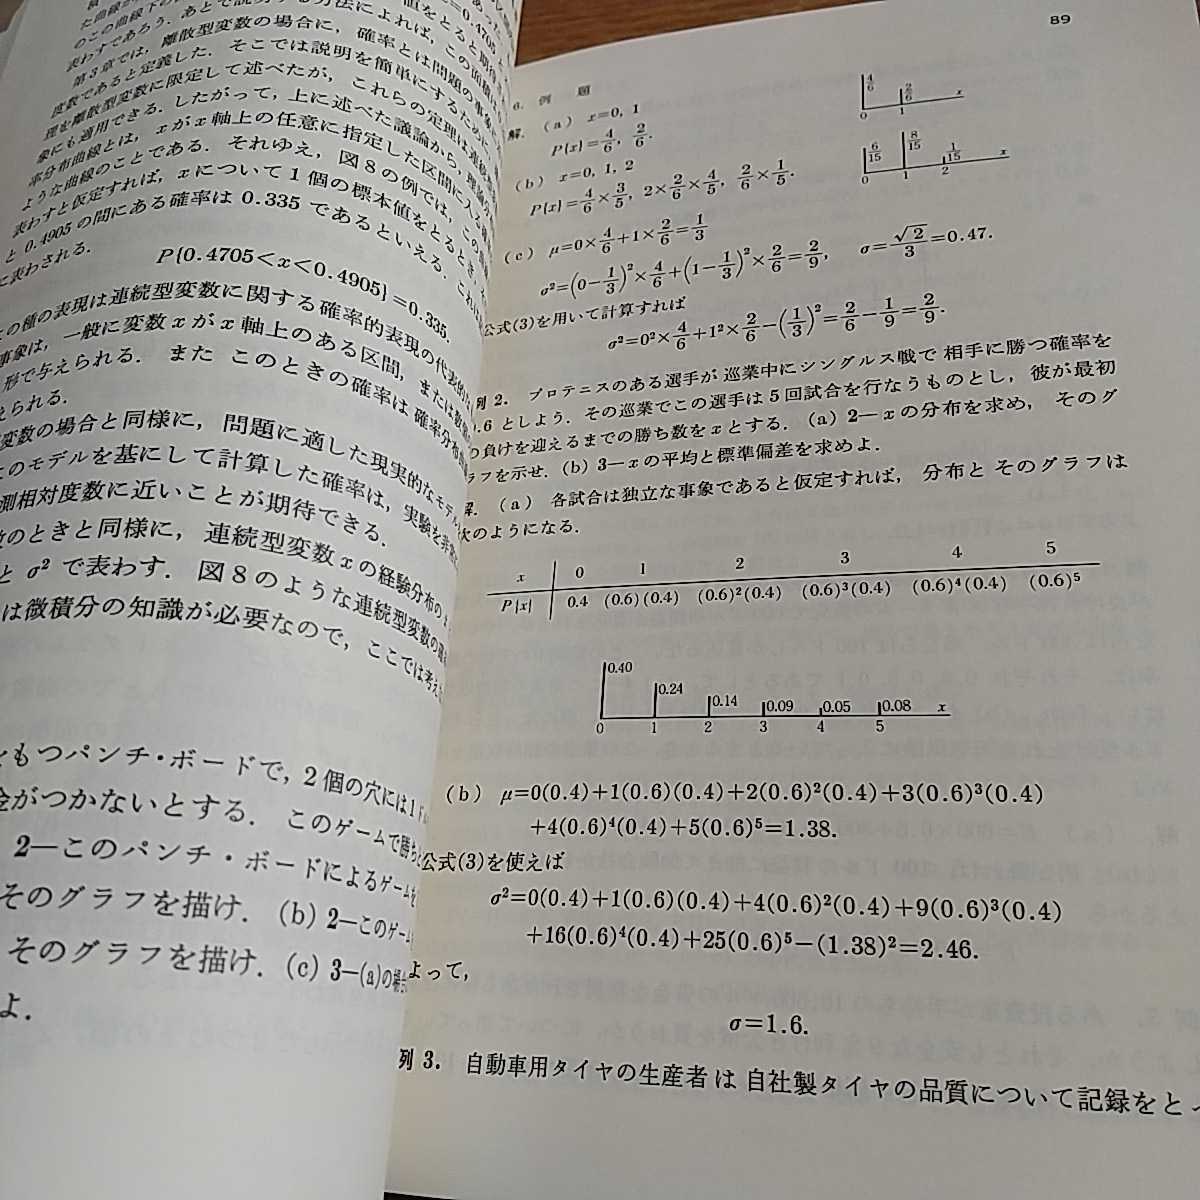 た曲線が
のこの曲線下の
表わすであろう．あとで説明する方法によれば，この面積
第3章では，離散型変数の場合に，確率とは問題の事象に
度数であると定義した．そこでは説明を簡単にするために
理を離散型変数に限定して述べたが，これらの定理は連続
象にも適用できる．したがって，上に述べた議論から，理論分
率分布曲線とは，xがx軸上の任意に指定した区間に入る確
ような曲線のことである．それゆえ，図8の例では，この曲
表わすと仮定すれば，xについて1個の標本値をとるとき，そ
と0.4905の間にある確率は0.335であるといえる．これは
に表わされる．
P{0.4705<x<0.4905}=0.335.
の種の表現は連続型変数に関する確率的表現の代表的な
事象は，一般に変数xがx軸上のある区間，または数個
形で与えられる．また このときの確率は確率分布曲
えられる．
変数の場合と同様に，問題に適した現実的なモデル
このモデルを基にして計算した確率は，実験を非常に
測相対度数に近いことが期待できる．
数のときと同様に，連続型変数xの経験分布の
と σ²で表わす．図8のような連続型変数の確率
は微積分の知識が必要なので，ここでは考え
をもつパンチ・ボードで，2個の穴には1ド
金がつかないとする．このゲームで勝ち
2—このパンチ・ボードによるゲームを
そのグラフを描け．(b) 2—このゲーム
そのグラフを描け．(c) 3—(a)の場合
よ．
89
6. 例 題
解．(a) x=0, 1
P{x}=4/6, 2/6.
4/6 2/6 x
0 1
(b) x=0, 1, 2
P{x}=4/6×3/5, 2×2/6×4/5, 2/6×1/5.
6/15 8/15 1/15 x
0 1 2
(c) μ=0×4/6+1×2/6=1/3
σ²=(0−1/3)²×4/6+(1−1/3)²×2/6=2/9, σ=√2/3=0.47.
公式(3)を用いて計算すれば
σ²=0²×4/6+1²×2/6−(1/3)²=2/6−1/9=2/9.
例 2. プロテニスのある選手が巡業中にシングルス戦で相手に勝つ確率を
0.6としよう．その巡業でこの選手は5回試合を行なうものとし，彼が最初
の負けを迎えるまでの勝ち数をxとする．(a) 2—xの分布を求め，そのグ
ラフを示せ．(b) 3—xの平均と標準偏差を求めよ．
解．(a) 各試合は独立な事象であると仮定すれば，分布とそのグラフは
次のようになる．
x 0 1 2 3 4 5
P{x} 0.4 (0.6)(0.4) (0.6)²(0.4) (0.6)³(0.4) (0.6)⁴(0.4) (0.6)⁵
0.40 0.24 0.14 0.09 0.05 0.08 x
0 1 2 3 4 5
(b) μ=0(0.4)+1(0.6)(0.4)+2(0.6)²(0.4)+3(0.6)³(0.4)
+4(0.6)⁴(0.4)+5(0.6)⁵=1.38.
公式(3)を使えば
σ²=0(0.4)+1(0.6)(0.4)+4(0.6)²(0.4)+9(0.6)³(0.4)
+16(0.6)⁴(0.4)+25(0.6)⁵−(1.38)²=2.46.
よって，
σ=1.6.
例 3. 自動車用タイヤの生産者は自社製タイヤの品質について記録をとっ